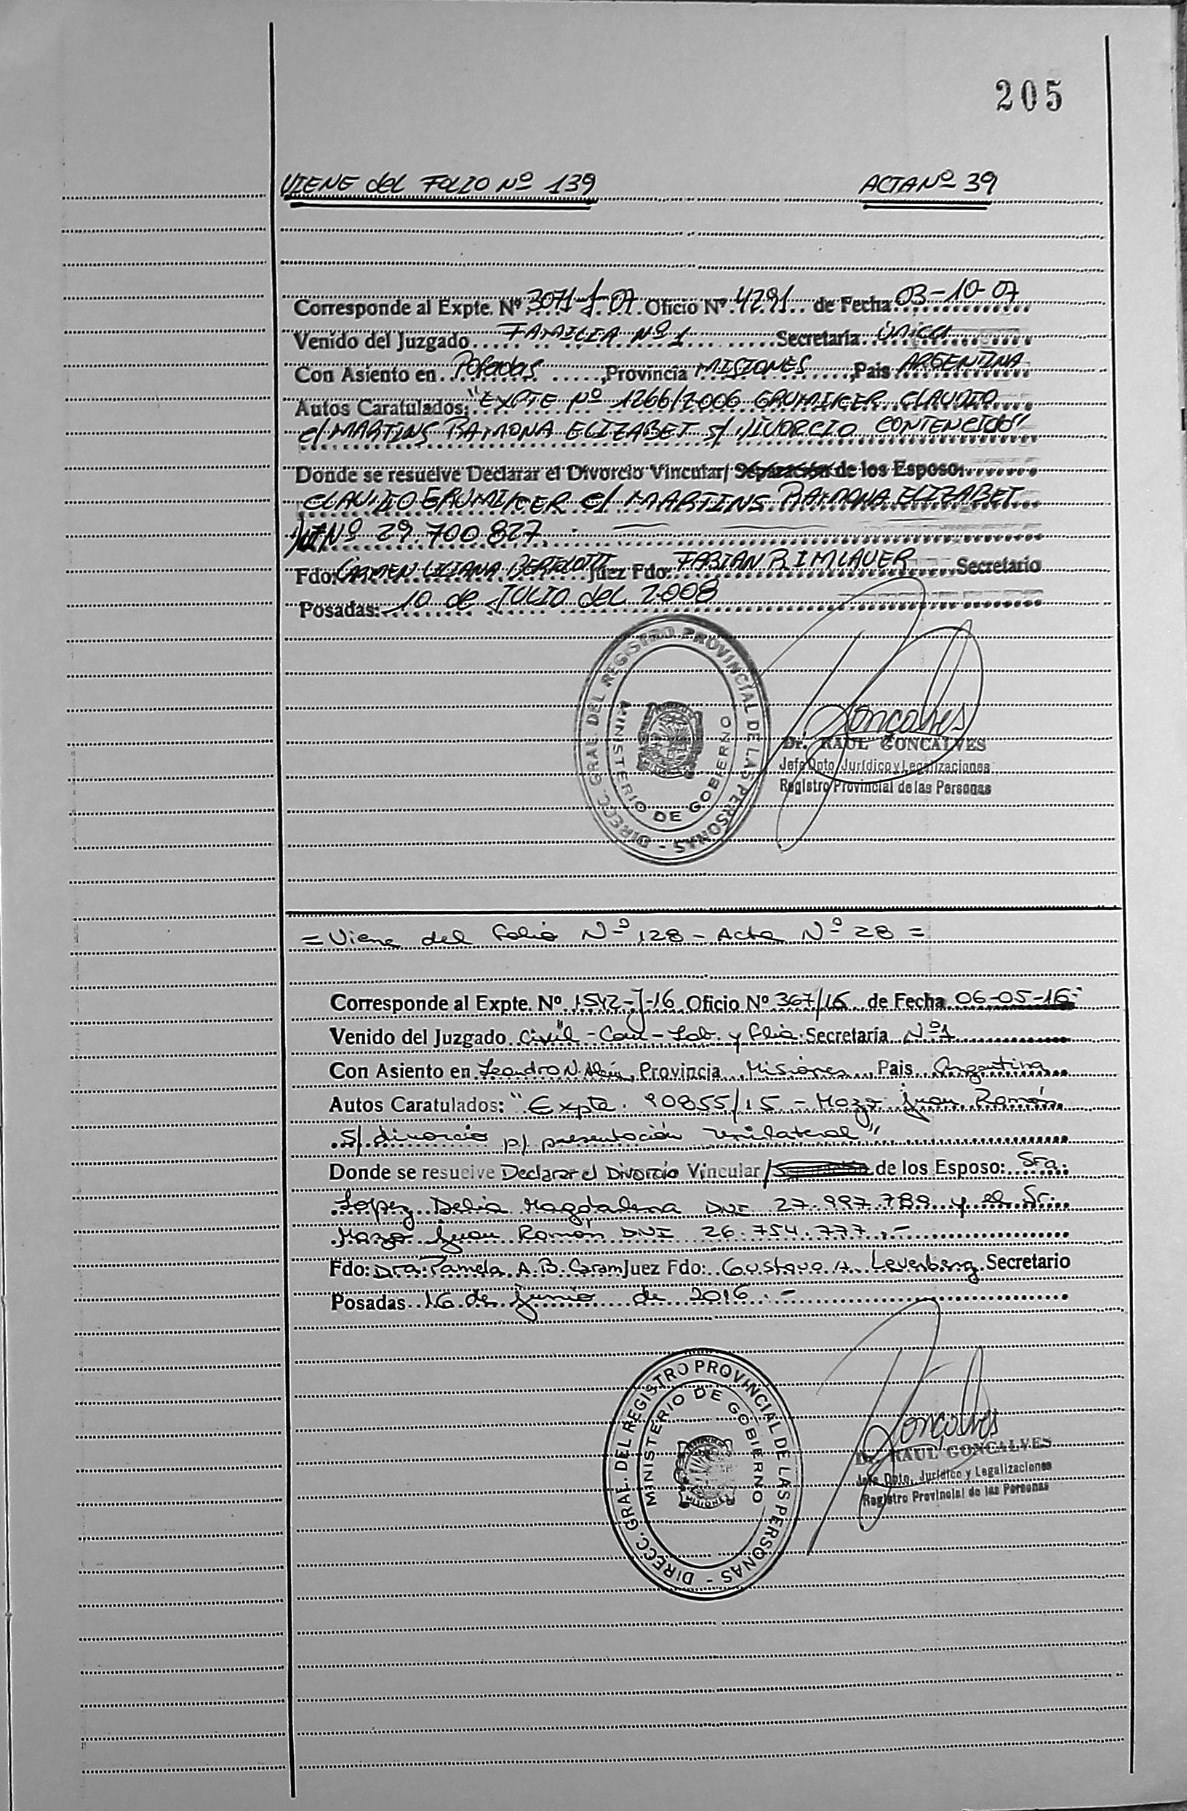 205
VIENE del FOLIO Nº 139 ACTA Nº 39
Corresponde al Expte. Nº 3071-J-07 Oficio Nº 4291 de Fecha 03-10-07
Venido del Juzgado FAMILIA Nº 1 Secretaría única
Con Asiento en Posadas, Provincia MISIONES, Pais ARGENTINA
Autos Caratulados: "EXPTE Nº 1266/2006 GRUMICER CLAUDIO
c/ MARTINS RAMONA ELIZABET s/ DIVORCIO CONTENCIOSO"
Donde se resuelve Declarar el Divorcio Vincular/ Separación de los Esposo:
CLAUDIO GRUMICER c/ MARTINS RAMONA ELIZABET
Nº 29.700.827.
Fdo: CARMEN LILIANA BERTOLOTTI Juez Fdo: FABIAN RIMLAUER Secretario
Posadas: 10 de JULIO del 2008
DIRECC. GRAL. DEL REGISTRO PROVINCIAL DE LAS PERSONAS -
MINISTERIO DE GOBIERNO
Gonçalves
Dr. RAUL GONCALVES
Jefe Dpto. Jurídico y Legalizaciones
Registro Provincial de las Personas
= Viene del Folio Nº 128 - Acta Nº 28 =
Corresponde al Expte. Nº 1542-J-16 Oficio Nº 367/16 de Fecha 06-05-16
Venido del Juzgado Civil - Com - Lab. y Flia. Secretaría Nº 1
Con Asiento en Leandro N. Alem, Provincia Misiones, Pais Argentina
Autos Caratulados: "Expte. 90855/15 - Mazo Juan Ramón
s/ divorcio p/ presentación unilateral"
Donde se resuelve Declarar el Divorcio Vincular/ de los Esposo: Sra.
López Delia Magdalena DNI 27.997.789 y el Sr.
Mazo Juan Ramón DNI 26.754.777.-
Fdo: Dra. Pamela A. B. Caram Juez Fdo: Gustavo A. Levenberg Secretario
Posadas 16 de Junio de 2016.-
DIRECC. GRAL. DEL REGISTRO PROVINCIAL DE LAS PERSONAS -
MINISTERIO DE GOBIERNO
MISIONES
Gonçalves
Dr. RAUL GONCALVES
Jefe Dpto. Jurídico y Legalizaciones
Registro Provincial de las Personas